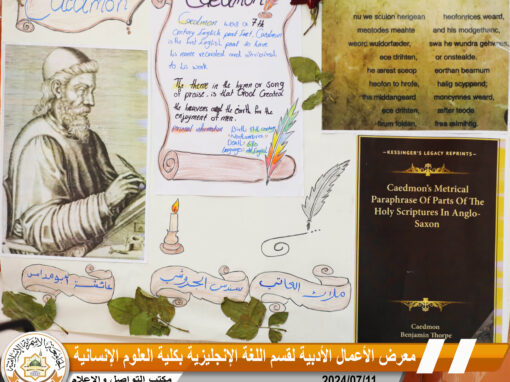 Caedmon
Caedmon
Caedmon was a 7th
Century English poet
the first English poet to have
his name recorded and
to his work
The theme in the hymn or song
of praise. is that God Created
the heavens and the Earth for the
enjoyment of men.
Personal information
nu we sculon herigean heofonrices weard,
meotodes meahte and his modgethanc,
weorc wuldorfæder, swa he wundra gehwæs,
ece drihten, or onstealde.
he ærest sceop eorthan bearnum
heofon to hrofe, halig scyppend;
tha middangeard moncynnes weard,
ece drihten, æfter teode
firum foldan, frea ælmihtig.
~KESSINGER'S LEGACY REPRINTS~
Caedmon's Metrical
Paraphrase Of Parts Of The
Holy Scriptures In Anglo-
Saxon
Caedmon
Benjamin Thorpe
معرض الأعمال الأدبية لقسم اللغة الإنجليزية بكلية العلوم الإنسانية
مكتب التواصل والإعلام
2024/07/11